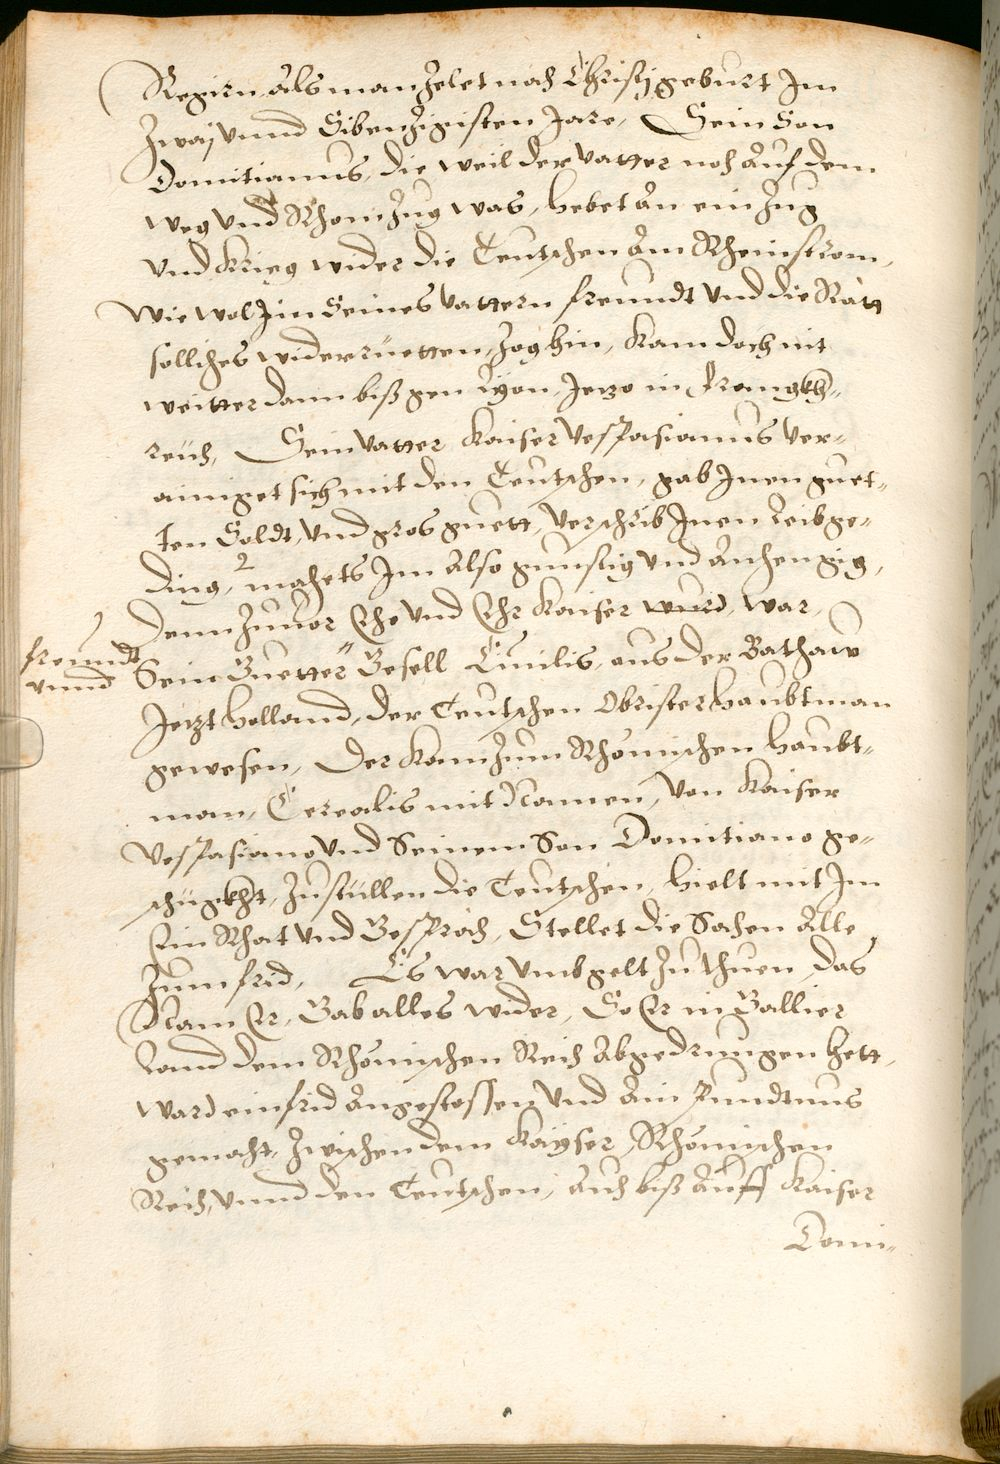 Regirn als man zelet nach Christj geburt Im
zway vnnd Sibenzigisten Jare, Sein Son
Domitianus, die weil der vatter noch auf dem
weg vnd Rhom zug was, hebet an ein zug
vnd Krieg wider die Teutschen am Rheinstrom,
wie wol Jm Seines vattern freundt vnd die Rätt
solliches widerrüetten, zog hin, kam doch nit
weitter dann biß gen Lÿon, Jetzo in Franngkh-
reich, Sein vatter Kaiser Vespasianus ver-
ainiget sich mit den Teutschen, gab Jnen guet-
ten Soldt, vnd gros guett, verschrib Jnen Leibge-
ding, machets Jm also günstig vnd anhengig,
Dann zuuor Ehe vnd Ehr Kaiser wurd, war
freundt
vnnd
Sein Guetter Gesell Ciuilis, aus der Bathaw
Jetzt Holland, der Teutschen Obrister haubtman
gewesen, der kam zum Rhömischen haubt-
man, Cerealis mit Namen, von Kaiser
Vespasiano vnd Seinem Son Domitiano ge-
schügkht, zu stüllen die Teutschen, hielt mit Jm
Ein Rhat vnd Gespräch, Stellet die Sachen alle
zum frid, Es war vmb gelt zu thuen, das
Nam Er, Gab alles wider, So Er in Gallier
Land dem Rhömischen Reich abgedrungen hett,
ward ein frid angestossen vnd ain Pundtnus
gemacht, zwischen dem Kayser, Rhömischen
Reich, vnnd den Teutschen, auch biß auff Kaiser
Domi-